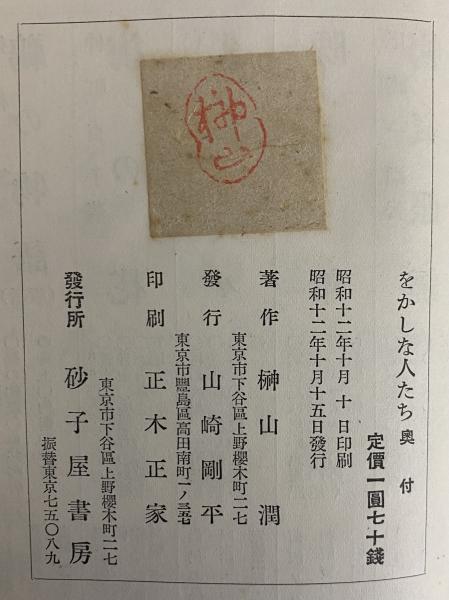 をかしな人たち 奥付
定價一圓七十錢
昭和十二年十月 十 日印刷
昭和十二年十月十五日發行
著作 榊山 潤
東京市下谷區上野櫻木町二七
發行 山崎剛平
東京市豐島區高田南町一ノ三五七
印刷 正木正家
東京市下谷區上野櫻木町二七
發行所 砂子屋書房
振替東京七五〇八九
榊山